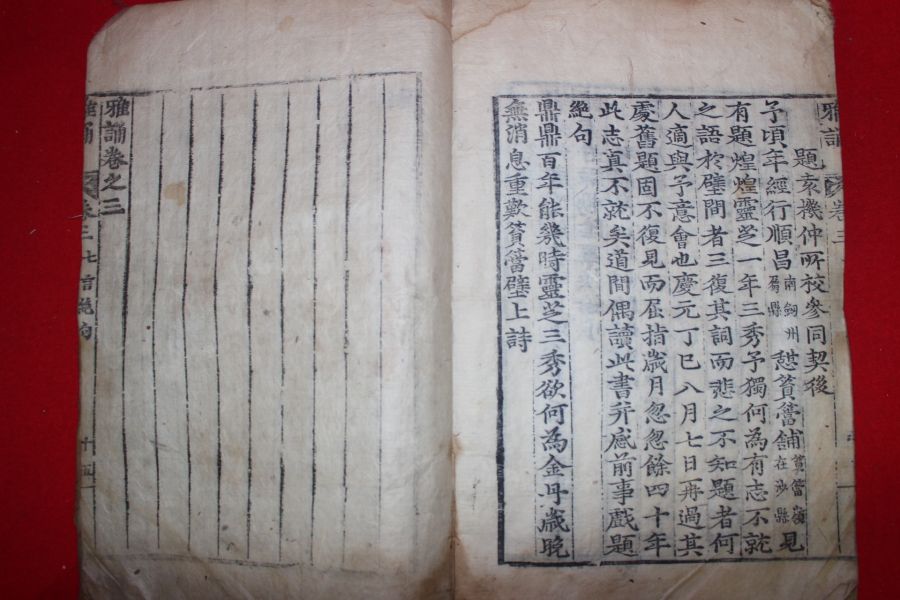 雅誦 卷三
題袁機仲所校參同契後
予頃年經行順昌南劒州屬縣憇篔簹鋪篔簹嶺在沙縣見
有題煌煌靈芝一年三秀予獨何為有志不就
之語於壁間者三復其詞而悲之不知題者何
人適與予意會也慶元丁巳八月七日再過其
處舊題固不復見而屈指歲月忽忽餘四十年
此志真不就矣道間偶讀此書并感前事戲題
絶句
鼎鼎百年能幾時靈芝三秀欲何為金丹歲晚
無消息重歎篔簹壁上詩
雅誦卷之三
雅誦 卷三 七言絶句 十四